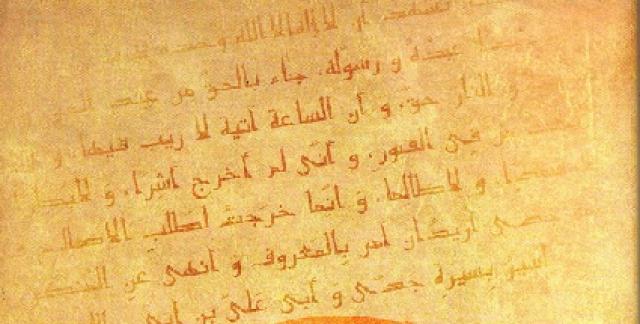 نشهد أن لا إله إلا الله وحده
عبده و رسوله، جاء بالحق من عند
و النار حق، و أن الساعة آتية لا ريب فيها، و
في القبور، و أنّي لم أخرج أشرا، و لا
و لا ظالما، و انّما خرجت أطلب الاصلاح
أريد أن آمر بالمعروف و أنهى عن المنكر
أسير بسيرة جدّي و أبي عليّ بن أبي